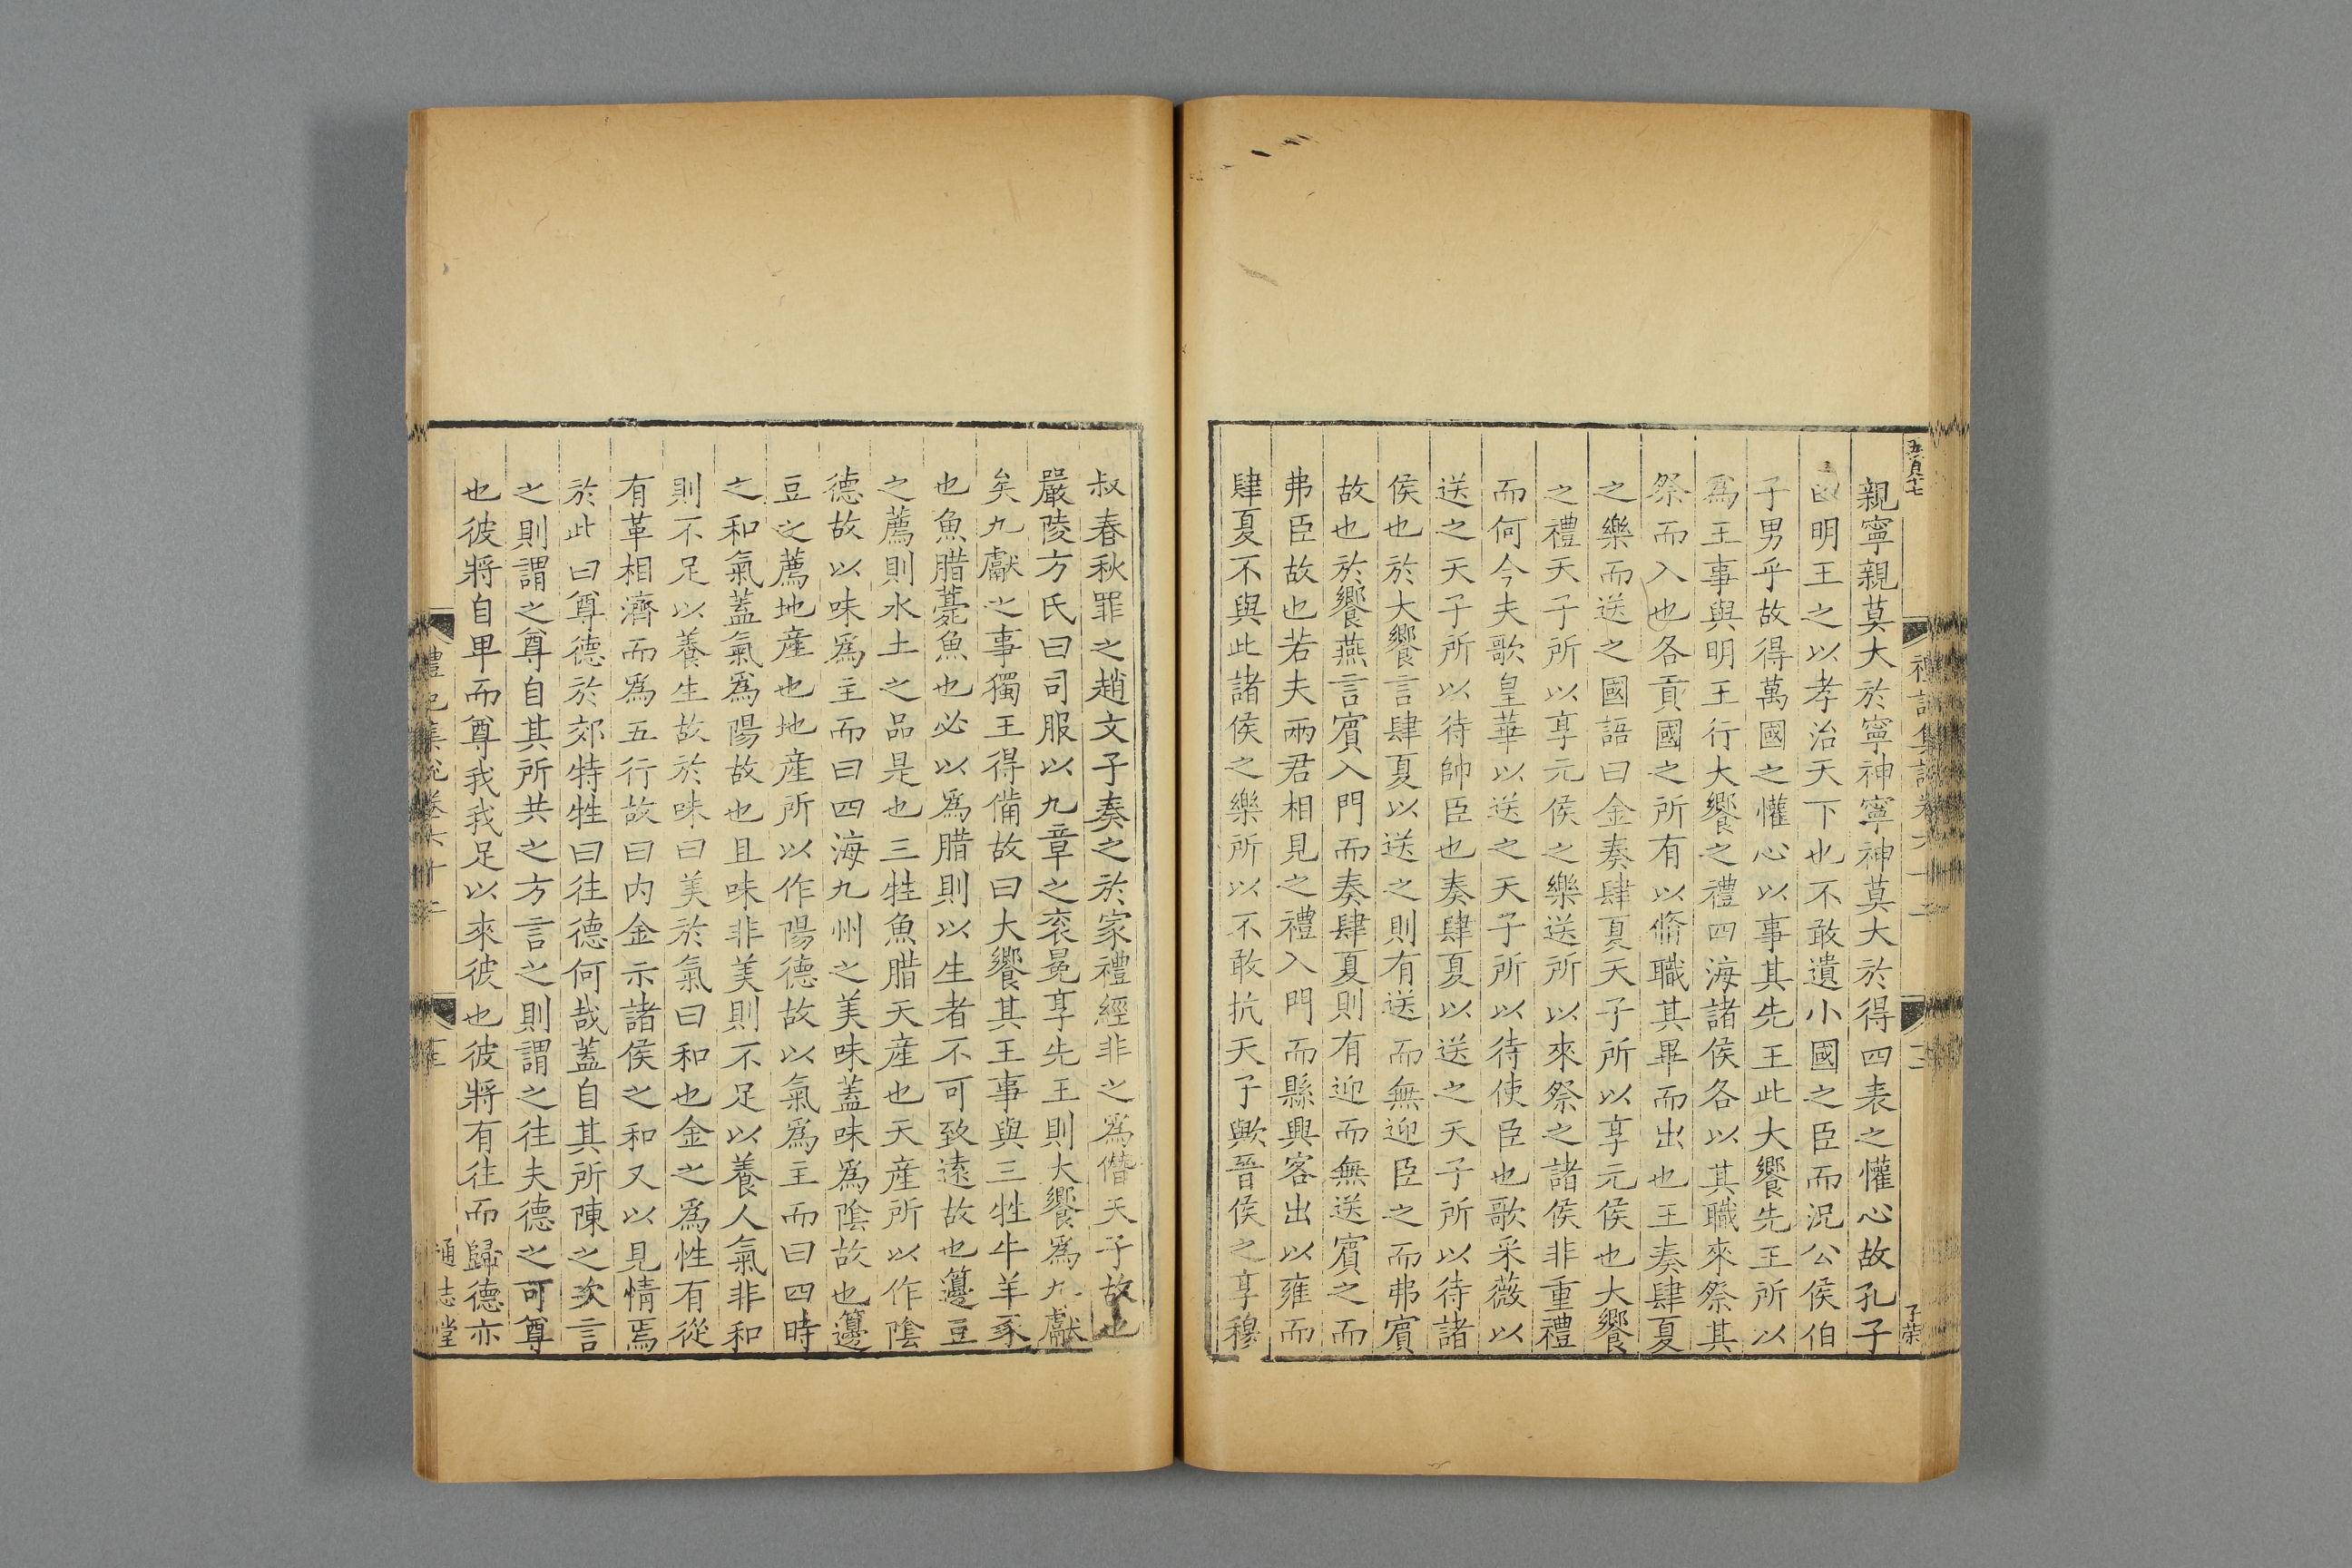 五百十七
親寧親莫大於寧神寧神莫大於得四表之懽心故孔子
曰明王之以孝治天下也不敢遺小國之臣而況公侯伯
子男乎故得萬國之懽心以事其先王此大饗先王所以
爲王事與明王行大饗之禮四海諸侯各以其職來祭其
祭而入也各貢國之所有以脩職其畢而出也王奏肆夏
之樂而送之國語曰金奏肆夏天子所以享元侯也大饗
之禮天子所以享元侯之樂送所以來祭之諸侯非重禮
而何今夫歌皇華以送之天子所以待使臣也歌采薇以
送之天子所以待帥臣也奏肆夏以送之天子所以待諸
侯也於大饗言肆夏以送之則有送而無迎臣之而弗賓
故也於饗燕言賓入門而奏肆夏則有迎而無送賓之而
弗臣故也若夫兩君相見之禮入門而縣興客出以雍而
肆夏不與此諸侯之樂所以不敢抗天子歟晉侯之享穆
子荣
叔春秋罪之趙文子奏之於家禮經非之爲僭天子故也
嚴陵方氏曰司服以九章之衮冕享先王則大饗爲九獻
矣九獻之事獨王得備故曰大饗其王事與三牲牛羊豕
也魚腊薨魚也必以爲腊則以生者不可致遠故也籩豆
之薦則水土之品是也三牲魚腊天産也天産所以作陰
德故以味爲主而曰四海九州之美味蓋味爲陰故也籩
豆之薦地産也地産所以作陽德故以氣爲主而曰四時
之和氣蓋氣爲陽故也且味非美則不足以養人氣非和
則不足以養生故於味曰美於氣曰和也金之爲性有從
有革相濟而爲五行故曰内金示諸侯之和又以見情焉
於此曰尊德於郊特牲曰往德何哉蓋自其所陳之次言
之則謂之尊自其所共之方言之則謂之往夫德之可尊
也彼將自卑而尊我我足以來彼也彼將有往而歸德亦
禮記集說卷六十
通志堂